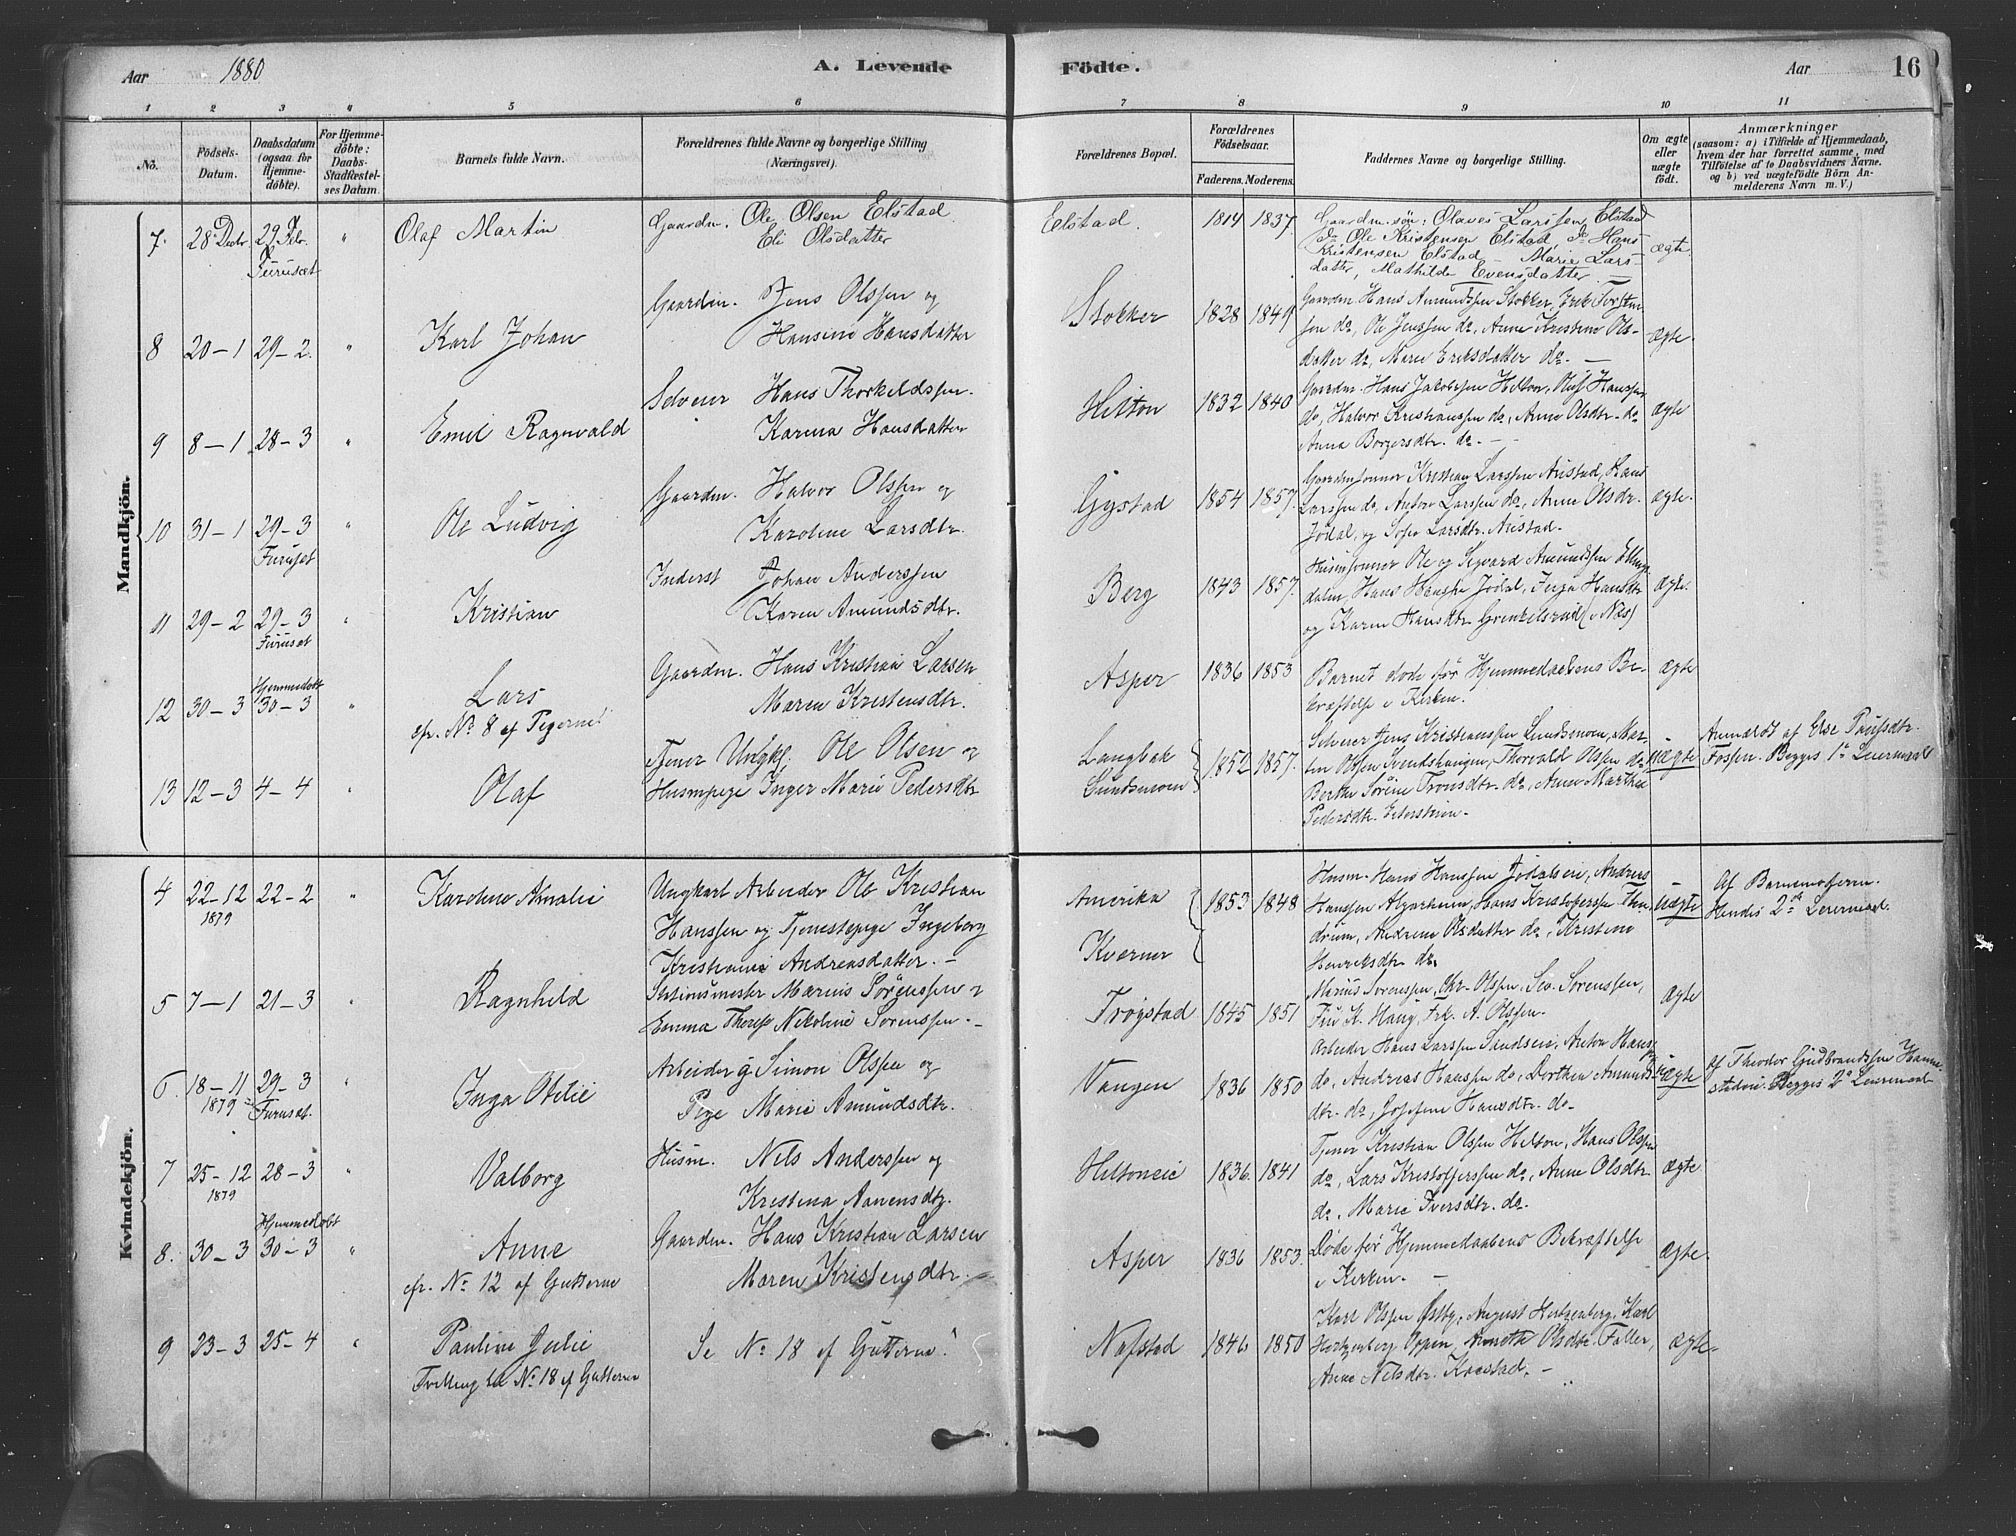 Aar 1880 A. Levende Födte. Aar 16
1 2 3 4 5 6 7 8 9 10 11
No.
Födsels-
Datum.
Daabsdatum
(ogsaa for
Hjemme-
döbte).
For Hjemme-
döbte:
Daabs-
Stadfæstel-
ses Datum.
Barnets fulde Navn.
Forældrenes fulde Navne og borgerlige Stilling
(Næringsvei).
Forældrenes Bopæl.
Forældrenes
Födselsaar.
Faderens. Moderens.
Faddernes Navne og borgerlige Stilling.
Om ægte
eller
uægte
födt.
Anmærkninger
(saasom: a) i Tilfælde af Hjemmedaab,
hvem der har forrettet samme, med
Tilföielse af to Daabsvidners Navne.
og b) ved uægtefödte Börn An-
melderens Navn m. V.)
Mandkjön.
7. 28 Decbr. 29 Febr. " Olaf Martin
Furuset
Gaardm. Ole Olsen Elstad
Eli Olsdatter
Elstad 1814 1837
Gaardm. søn: Olaves Larssen Elstad
do Ole Kristensen Elstad, do Hans
Kristensen Elstad – Marie Lars-
datter, Mathilde Evensdatter –
ægte.
8 20-1 29-2. " Karl Johan
Gaardm. Jens Olssen og
Hansine Hansdatter
Stokker 1828 1849
Gaardm. Hans Amundssen Stokker, Erik Torsten-
sen do, Ole Jenssen do, Anne Kristine Ols-
datter do, Maren Eriksdatter do. –
ægte.
9 8-1 28-3 " Emil Ragnvald
Selveier Hans Thorkildssen.
Karina Hansdatter
Helton 1832 1840
Gaardm. Hans Jakobssen Helton, Oluf Hanssen
do, Halvor Kristianssen do, Anne Olsdtr. do
Anna Borgersdtr. do. –
ægte
10 31-1 29-3 " Ole Ludvig
Furuset
Gaardm. Halvor Olssen og
Karoline Larsdtr.
Gystad 1854 1857.
Gaardmsønner Kristian Larssen Aristad, Hans
Larssen do, Anton Larssen do, Anne Olsdtr.
Jødal, og Sofie Larsdtr. Aristad.
ægte.
11 29-2 29-3 " Kristian
Furuset
Inderst Johan Anderssen
Karen Amundsdtr.
Berg 1843 1857.
Husmsønner Ole og Sigvard Amundssen
Jødal, Inga Hansdtr
og Karen Hansdtr. (Næs)
ægte.
12 30-3 Hjemmedøbt
30-3 " Lars
cfr. No 8 af Pigerne
Gaardm. Hans Kristian Larsen
Maren Kristensdtr.
Asper 1836 1853
Barnet døde før Hjemmedaabens Be-
kræftelse i Kirken.
ægte
13 12-3 4-4 " Olaf
Tjener Ungkl. Ole Olsen og
Husmpige Inger Marie Pedersdtr
Langbak
Lundsmoen
1852 1857.
Selveier Jens Kristianssen Lundsmoen, Mar-
tin Olssen Svendshaugen, Thorvald Olssen do
Berthe Sørine Tronsdtr. do, Anne Marthea
Pedersdtr.
uægte
Anmeldt af Else Paulsdtr.
Fossen. Begges 1te Leiermaal
Kvindekjön.
4 22-12 22-2 " Karoline Amalie
1879
Ungkarl Arbeider Ole Kristian
Hanssen og Tjenestepige Ingeborg
Kristiane Andreasdatter. –
Amerika
Kverner
1853 1848
Husm. Hans Hanssen Jødalseie, Andreas
Hanssen Algarheim, Hans Kristoferssen Thin-
drum, Andrine Olsdatter do, Kristine
Henriksdtr. do.
Uægte
Af Barnemoderen.
Hendes 2det Leiermaal.
5 7-1 21-3 " Ragnhild
Stationsmester Marius Sørenssen og
Emma Therese Nikoline Sørenssen. –
Trøgstad 1845 1851
Marius Sørenssen, Chr. Olssen, Sev. Sørenssen,
Fru K. Haug, Frk. A. Olssen.
ægte
6. 18-11 29-3 " Inga Otilie
1879 Furuset.
Arbeider g. Simon Olssen og
Pige Marie Amundsdtr.
Vangen 1836 1850
Arbeider Hans Larssen Sandseie, Anton Hanssen
do, Andreas Hanssen do, Dorthea Amunds-
dtr. do, Josefine Hansdtr. do.
Uægte
Af Theodor Gudbrandssen Hanne-
stadeie. Begges 2det Leiermaal
7 25-12 28-3 " Valborg
1879
Husm. Nils Anderssen og
Kristina Aanensdtr.
Heltoneie 1836. 1841
Tjener Kristian Olssen Helton, Hans Olssen
do, Lars Kristofferssen do, Anne Olsdtr.
do, Marie Iversdtr. do.
ægte
8. 30-3 Hjemmedøbt
30-3 " Anne
cfr. No 12 af Gutterne
Gaardm. Hans Kristian Larsen
Maren Kristensdtr.
Asper 1836 1853.
Døde før Hjemmedaabens Bekræftelse
i Kirken. –
ægte.
9 23-3 25-4 " Pauline Julie
Tvilling til No 18 af Gutterne
Se No 18 af Gutterne.
Nafstad 1846 1850
Karl Olssen Østby, August Hertzenberg, Karl
Hertzenberg Oppen, Annette Olsdtr. Faller,
Anne Nilsdtr. Kaastad. –
ægte.